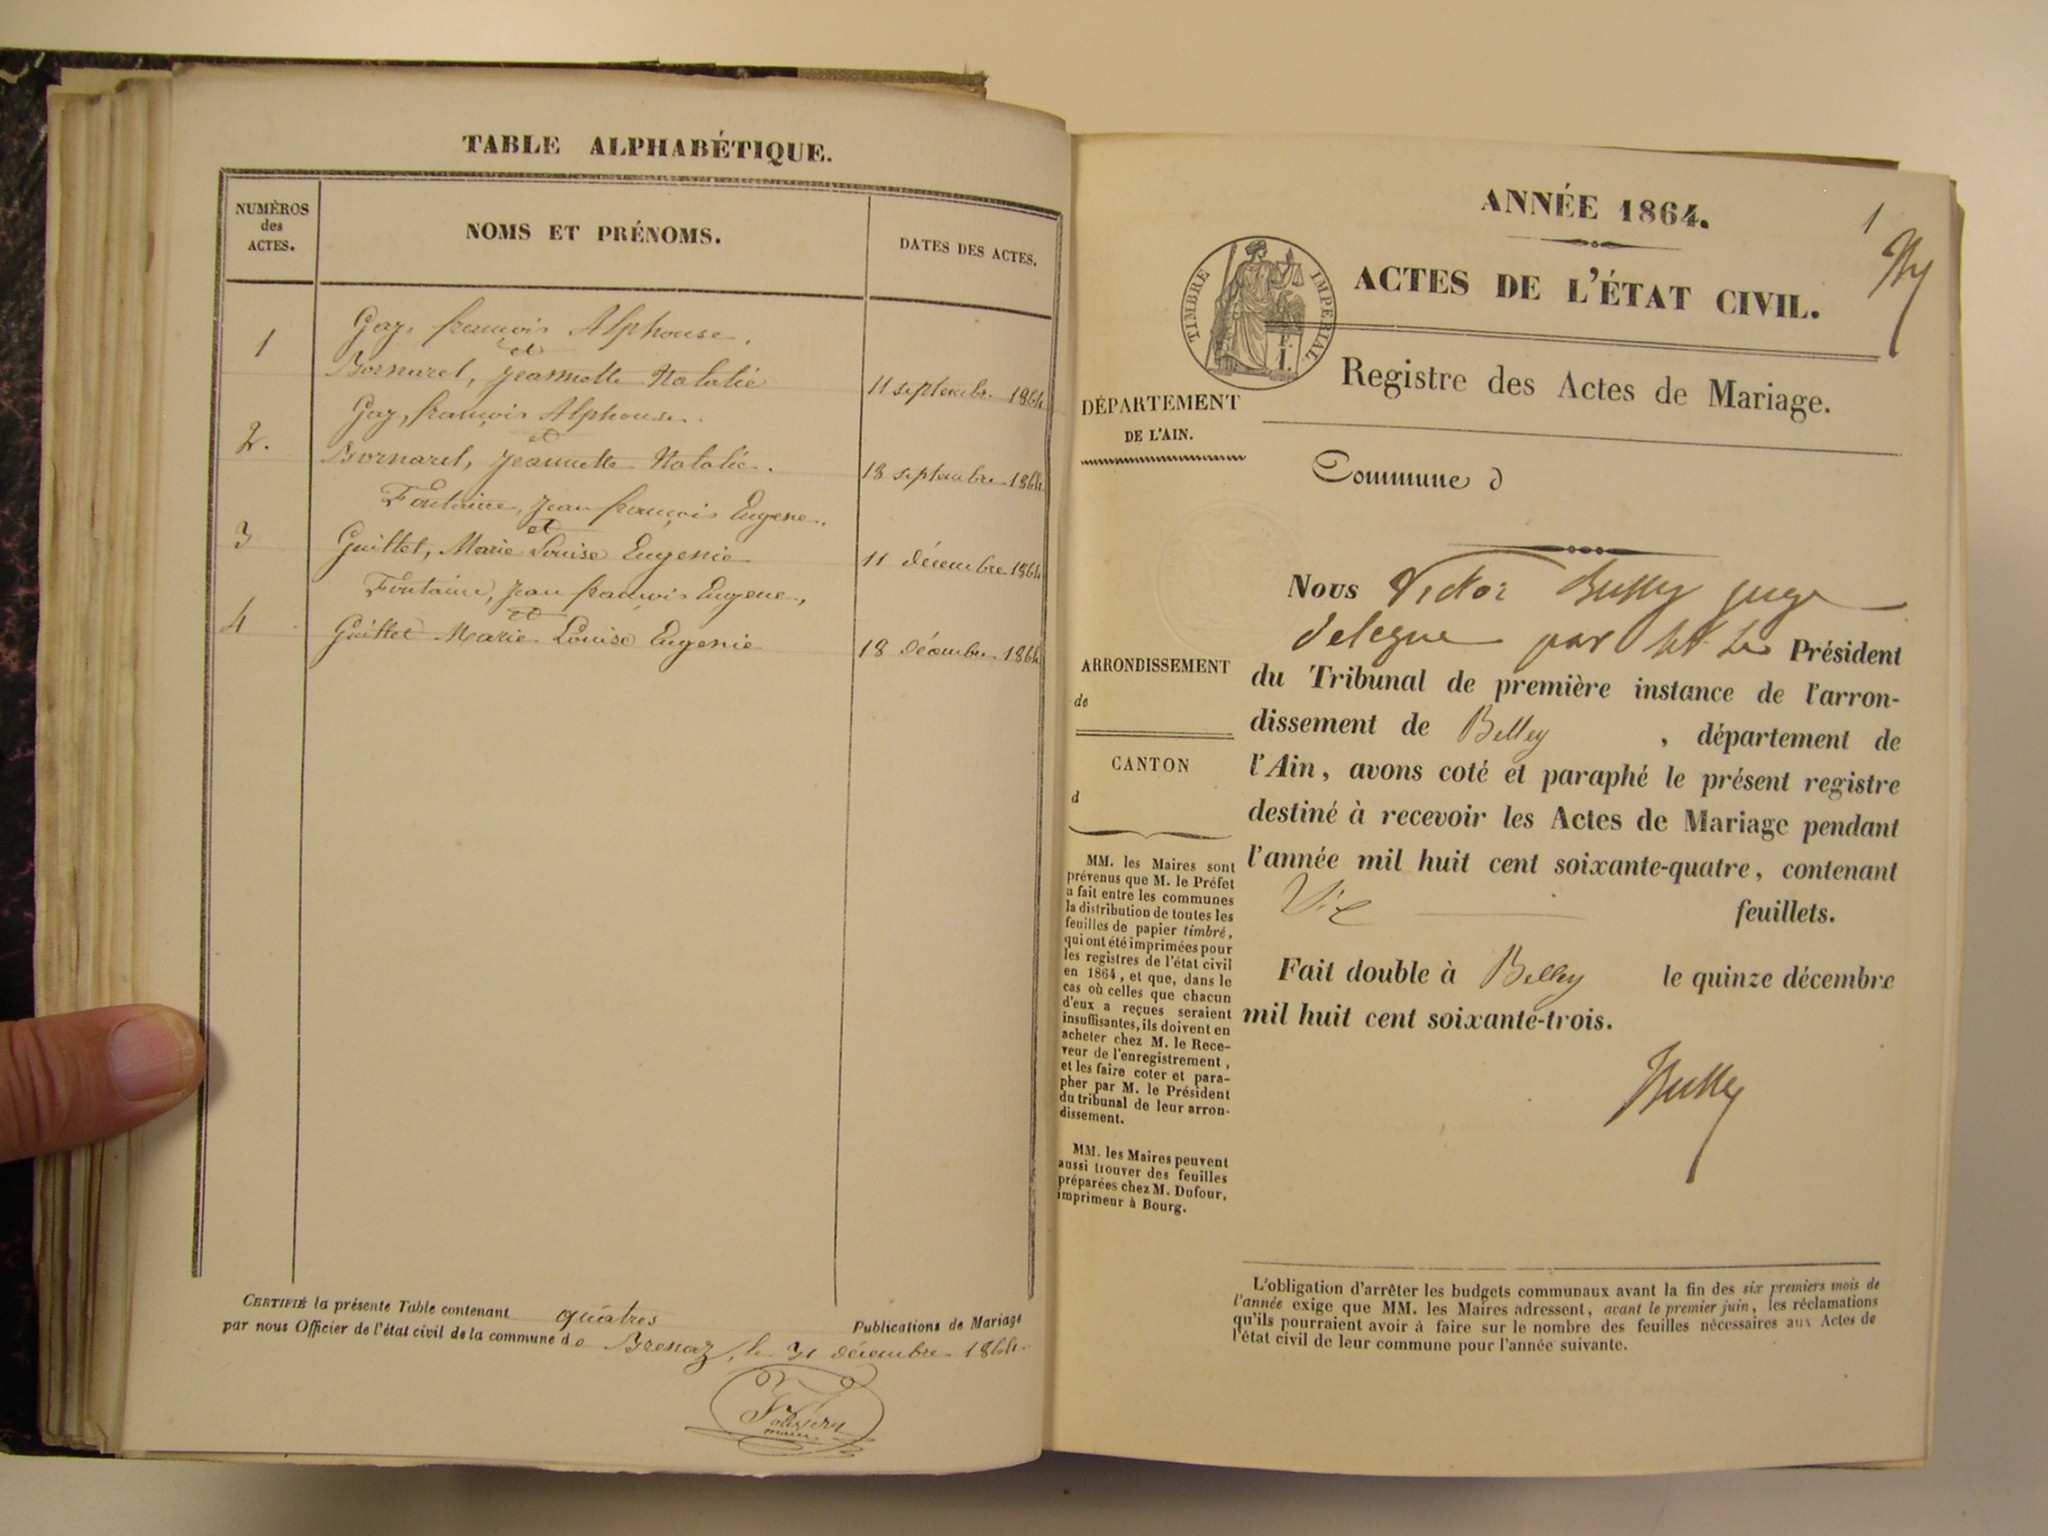 TABLE ALPHABÉTIQUE.
NUMÉROS
des
ACTES.
NOMS ET PRÉNOMS.
DATES DES ACTES.
1
Gay, françois Alphonse.
et
Bornarel, Jeannette Natalie
11 septembre 1864
2.
Gay, françois Alphonse.
et
Bornarel, Jeannette Natalie.
18 septembre 1864
3
Fontaine, Jean françois Eugene.
et
Guillet, Marie Louise Eugenie
11 décembre 1864
4
Fontaine, Jean françois Eugene,
et
Guillet Marie Louise Eugenie
18 décembre 1864
CERTIFIÉ la présente Table contenant quatres Publications de Mariage
par nous Officier de l'état civil de la commune de Brenaz, le 31 décembre 1864.
maire
ANNÉE 1864.
1
ACTES DE L'ÉTAT CIVIL.
TIMBRE IMPÉRIAL
F.
1.
Registre des Actes de Mariage.
DÉPARTEMENT
DE L'AIN.
Commune d
Nous Victor Bussy juge
delegue par M. Le Président
du Tribunal de première instance de l'arron-
dissement de Belley , département de
l'Ain, avons coté et paraphé le présent registre
destiné à recevoir les Actes de Mariage pendant
l'année mil huit cent soixante-quatre, contenant
feuillets.
Fait double à Belley le quinze décembre
mil huit cent soixante-trois.
Bussy
ARRONDISSEMENT
de
CANTON
d
MM. les Maires sont
prévenus que M. le Préfet
a fait entre les communes
la distribution de toutes les
feuilles de papier timbré,
qui ont été imprimées pour
les registres de l'état civil
en 1864, et que, dans le
cas où celles que chacun
d'eux a reçues seraient
insuffisantes, ils doivent en
acheter chez M. le Rece-
veur de l'enregistrement,
et les faire coter et para-
pher par M. le Président
du tribunal de leur arron-
dissement.
MM. les Maires peuvent
aussi trouver des feuilles
préparées chez M. Dufour,
imprimeur à Bourg.
L'obligation d'arrêter les budgets communaux avant la fin des six premiers mois de
l'année exige que MM. les Maires adressent, avant le premier juin, les réclamations
qu'ils pourraient avoir à faire sur le nombre des feuilles nécessaires aux Actes de
l'état civil de leur commune pour l'année suivante.